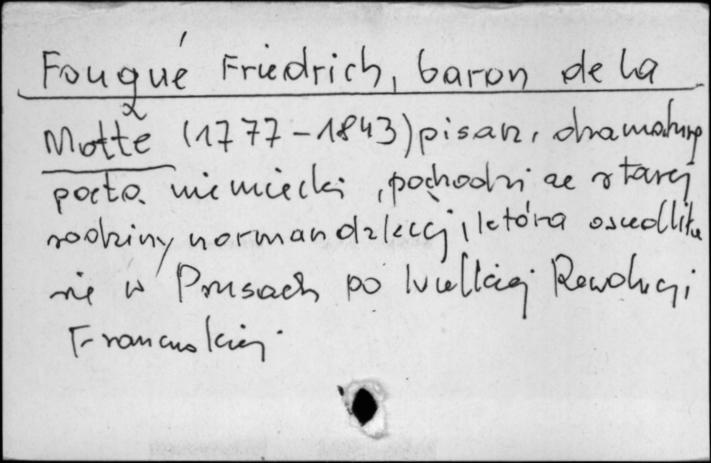 Fouqué Friedrich, baron de la
Motte (1777-1843) pisarz, dramaturg
poeta niemiecki, pochodzi ze starej
rodziny normandzkiej, która osiedliła
się w Prusach po Wielkiej Rewolucji
Francuskiej.